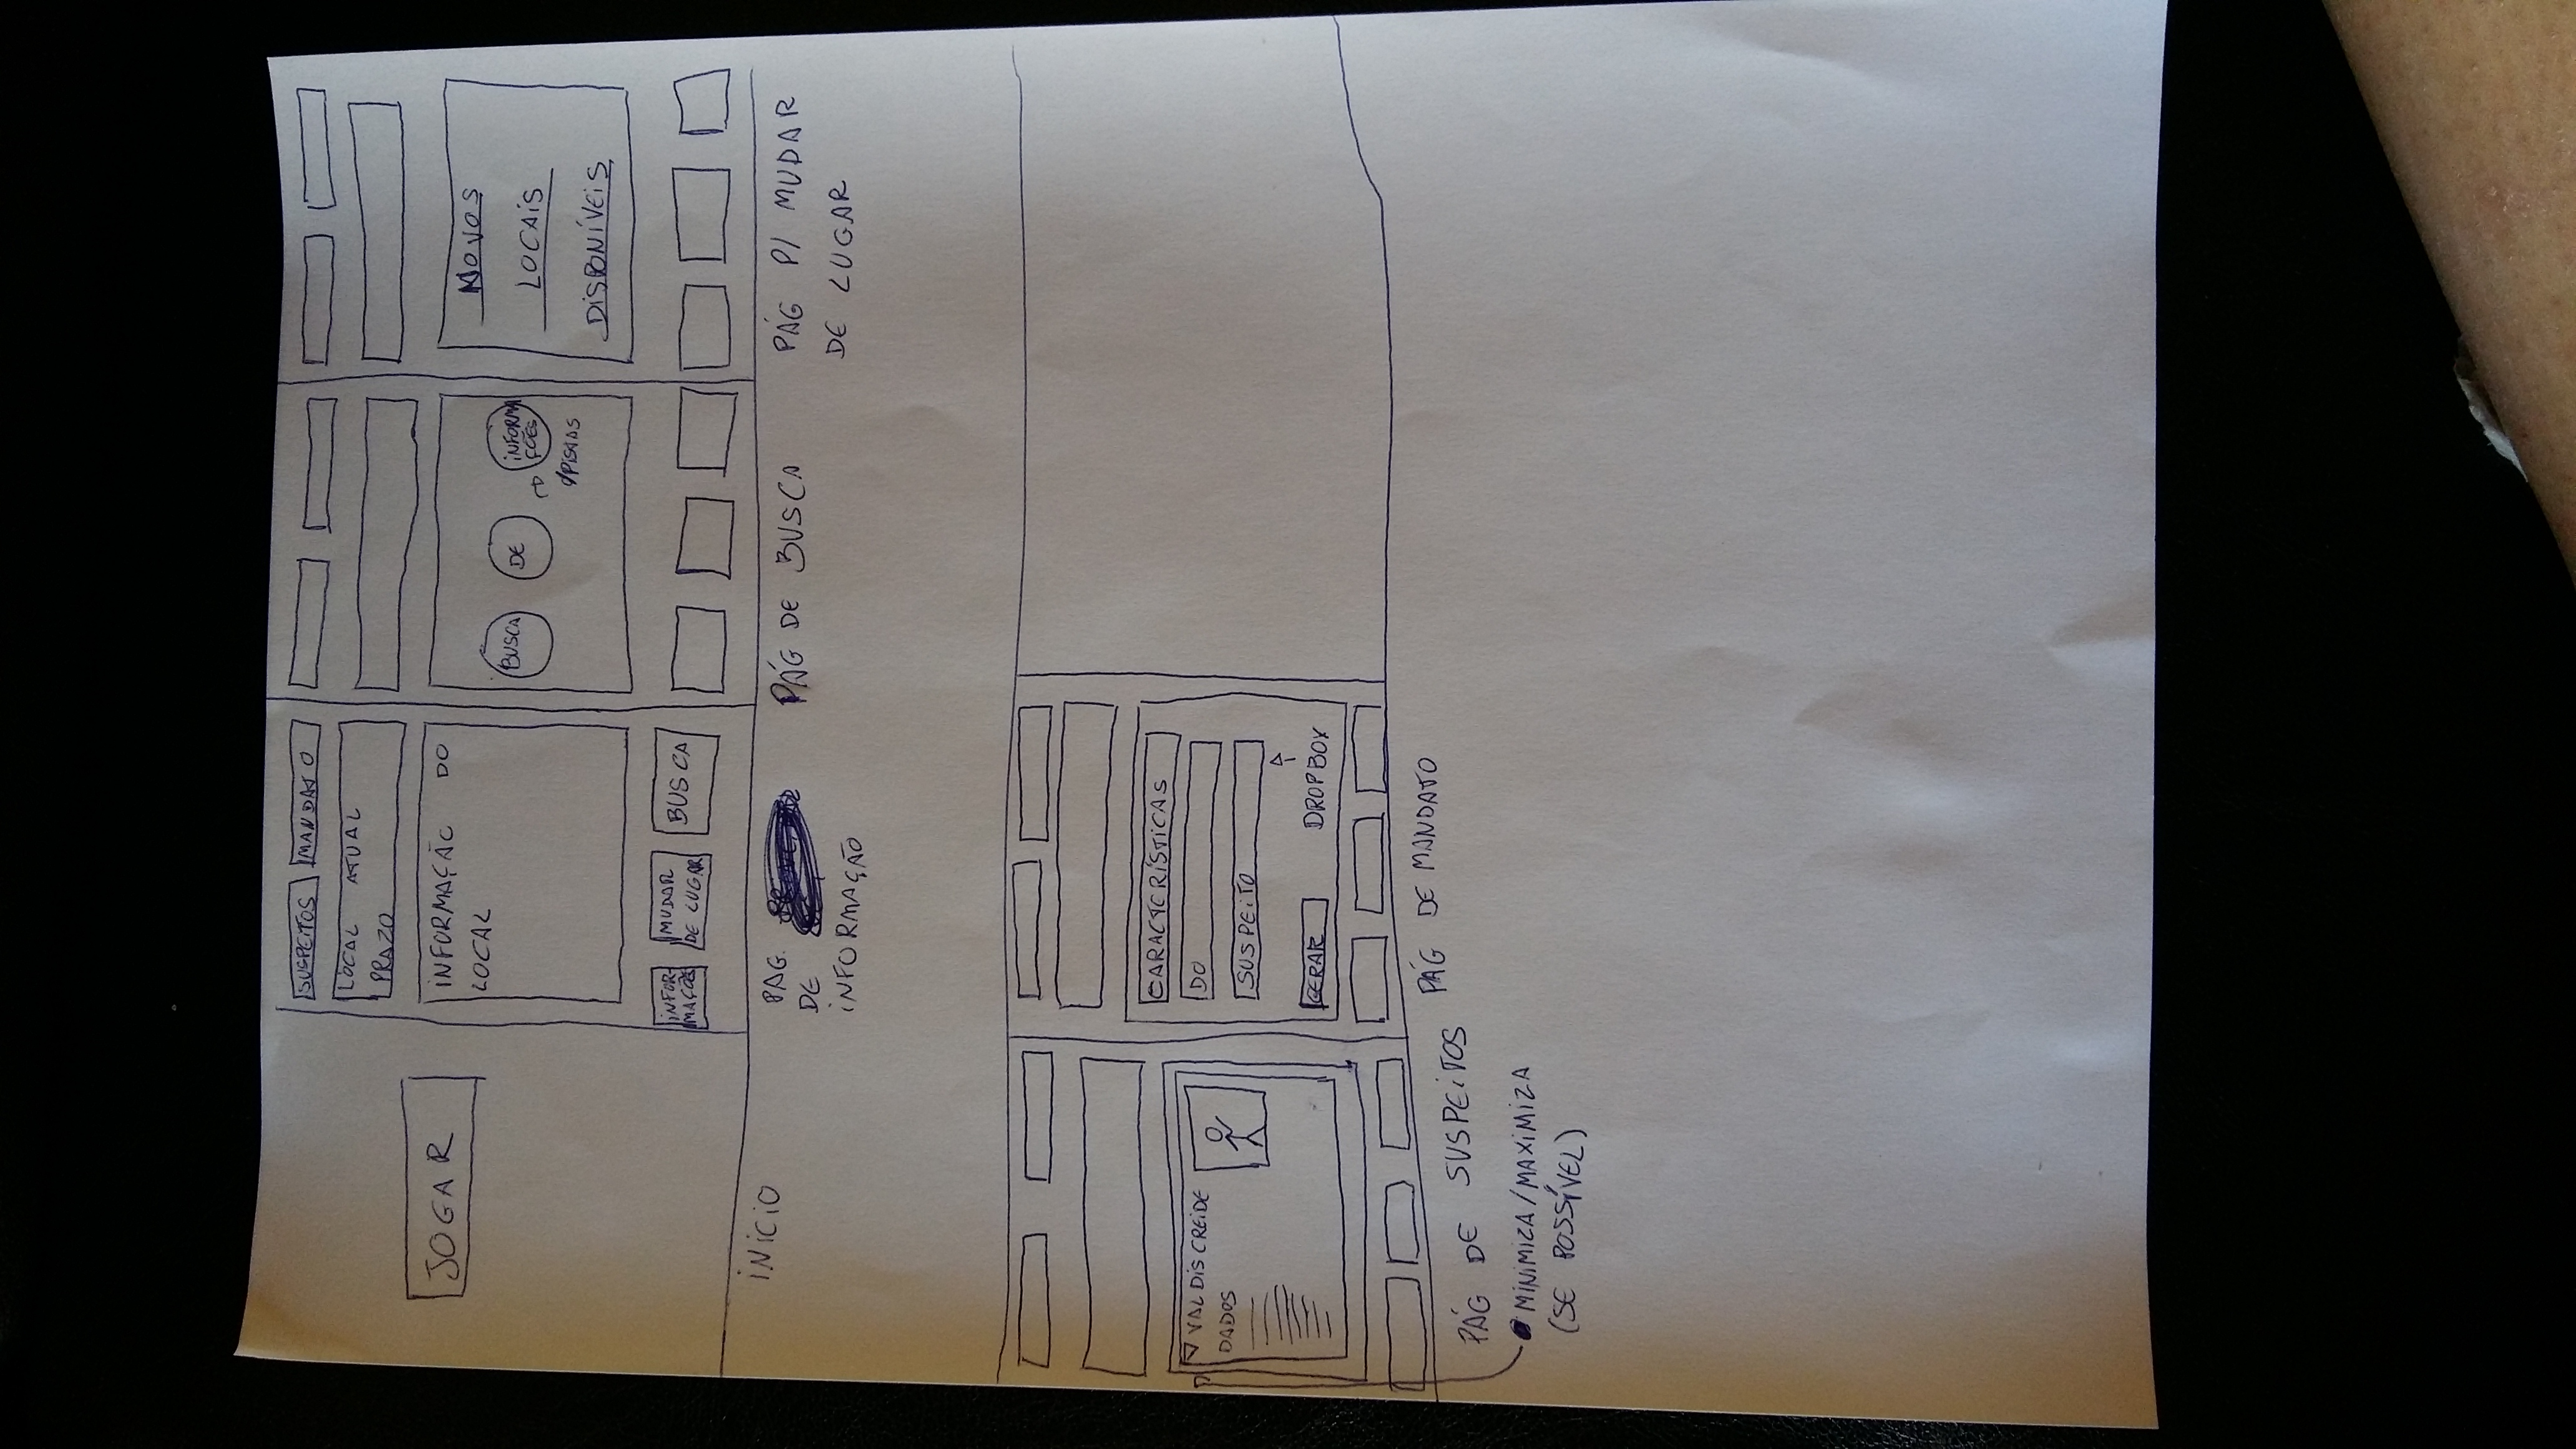 JOGAR
INICIO
SUSPEITOS
MANDATO
LOCAL ATUAL
PRAZO
INFORMAÇÃO DO
LOCAL
INFOR-
MAÇÕES
MUDAR
DE LUGAR
BUSCA
PAG.
DE
INFORMAÇÃO
BUSCA
DE
INFORMA
ÇÕES
P/PISTAS
PÁG DE BUSCA
NOVOS
LOCAIS
DISPONÍVEIS
PÁG P/ MUDAR
DE LUGAR
VALDISCREIDE
DADOS
PÁG DE SUSPEITOS
MINIMIZA/MAXIMIZA
(SE POSSÍVEL)
CARACTERÍSTICAS
DO
SUSPEITO
GERAR
DROPBOX
PÁG DE MANDATO